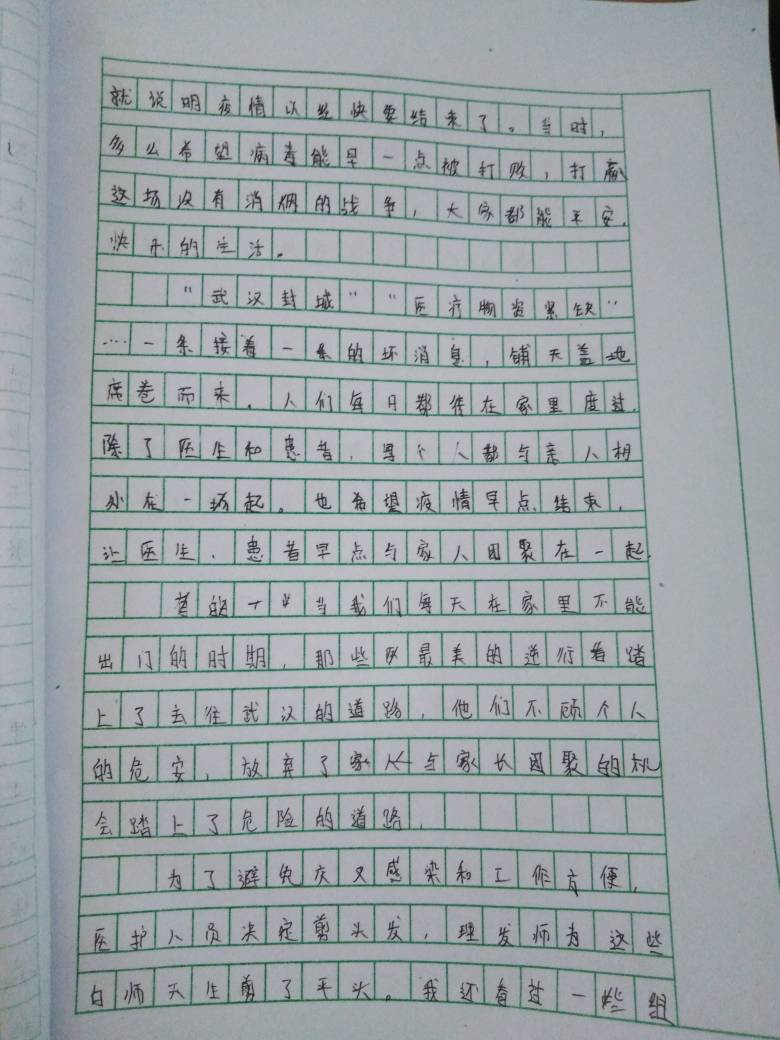 就说明疫情以经快要结束了。当时，
多么希望病毒能早一点被打败，打赢
这场没有消烟的战争，大家都能平安，
快乐的生活。
"武汉封城""医疗物资紧缺"
……一条接着一条的坏消息，铺天盖地
席卷而来。人们每日都待在家里度过，
除了医生和患者，每个人都与亲人相
处在一起。也希望疫情早点结束，
让医生、患者早点与家人团聚在一起，
当我们每天在家里不能
出门的时期，那些最美的逆行者踏
上了去往武汉的道路，他们不顾个人
的危安，放弃了家人与家长团聚的机
会踏上了危险的道路，
为了避免交叉感染和工作方便，
医护人员决定剪头发，理发师为这些
白师天生剪了平头。我还看过一些组